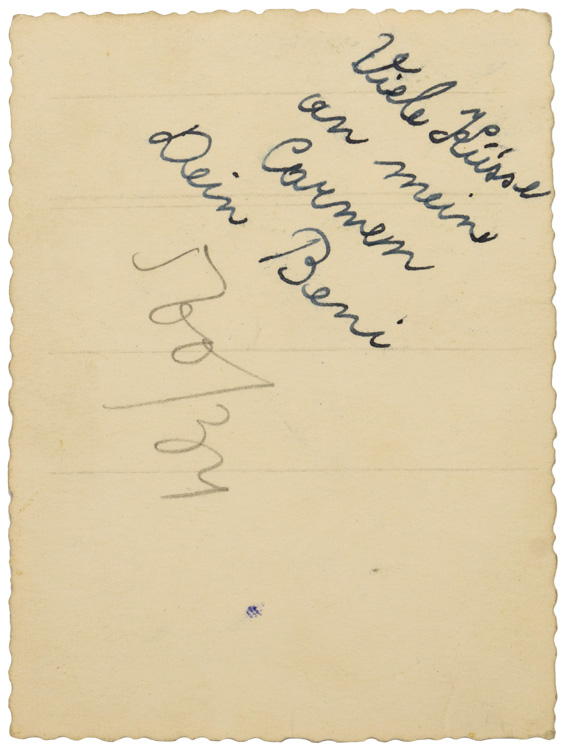 Viele Küsse
an mein
Carmen
Dein Beni